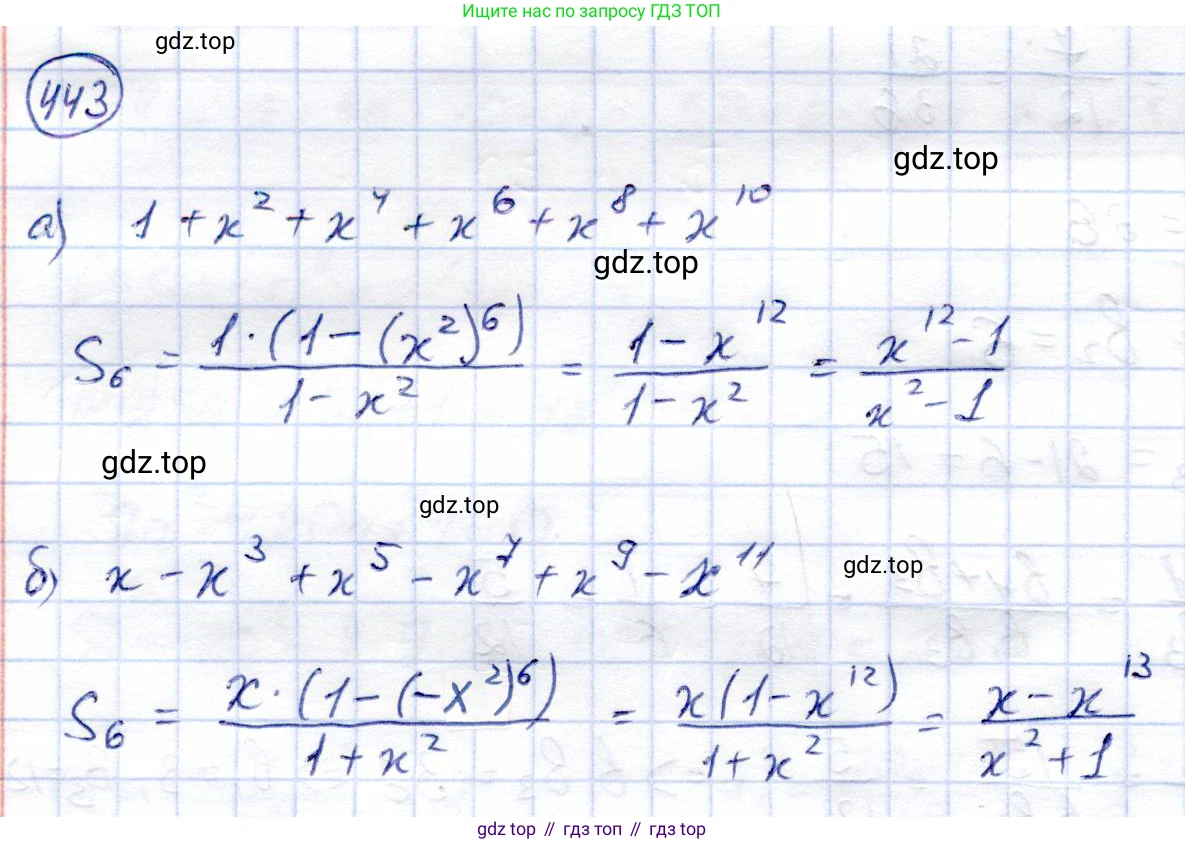 Ищите нас по запросу ГДЗ ТОП
gdz.top
443
gdz.top
а) 1 + x² + x⁴ + x⁶ + x⁸ + x¹⁰
gdz.top
S₆ = (1·(1 − (x²)⁶))/(1 − x²) = (1 − x¹²)/(1 − x²) = (x¹² − 1)/(x² − 1)
gdz.top
gdz.top
б) x − x³ + x⁵ − x⁷ + x⁹ − x¹¹
gdz.top
S₆ = (x·(1 − (−x²)⁶))/(1 + x²) = (x(1 − x¹²))/(1 + x²) = (x − x¹³)/(x² + 1)
gdz top // гдз топ // гдз top